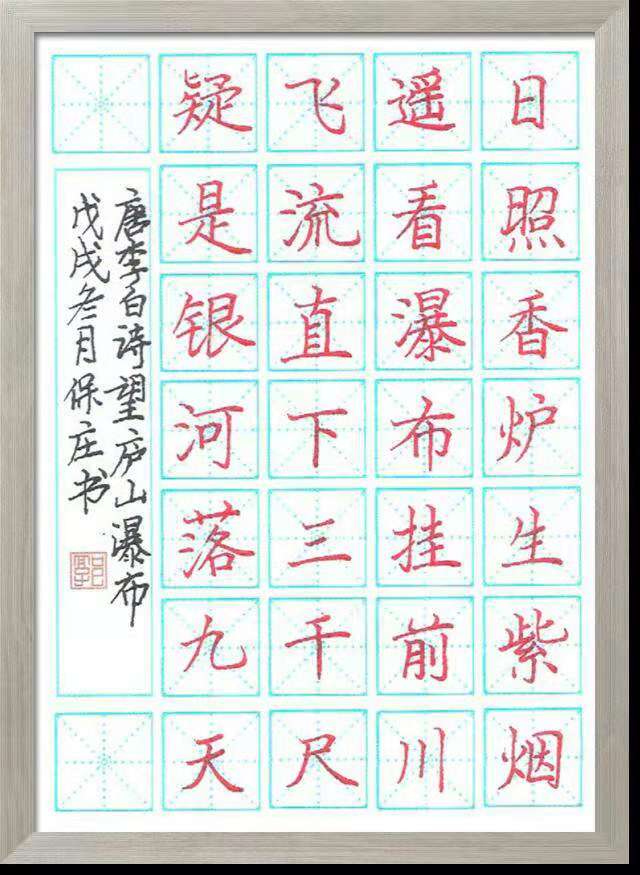 日照香炉生紫烟
遥看瀑布挂前川
飞流直下三千尺
疑是银河落九天
唐李白诗望庐山瀑布
戊戌冬月保庄书